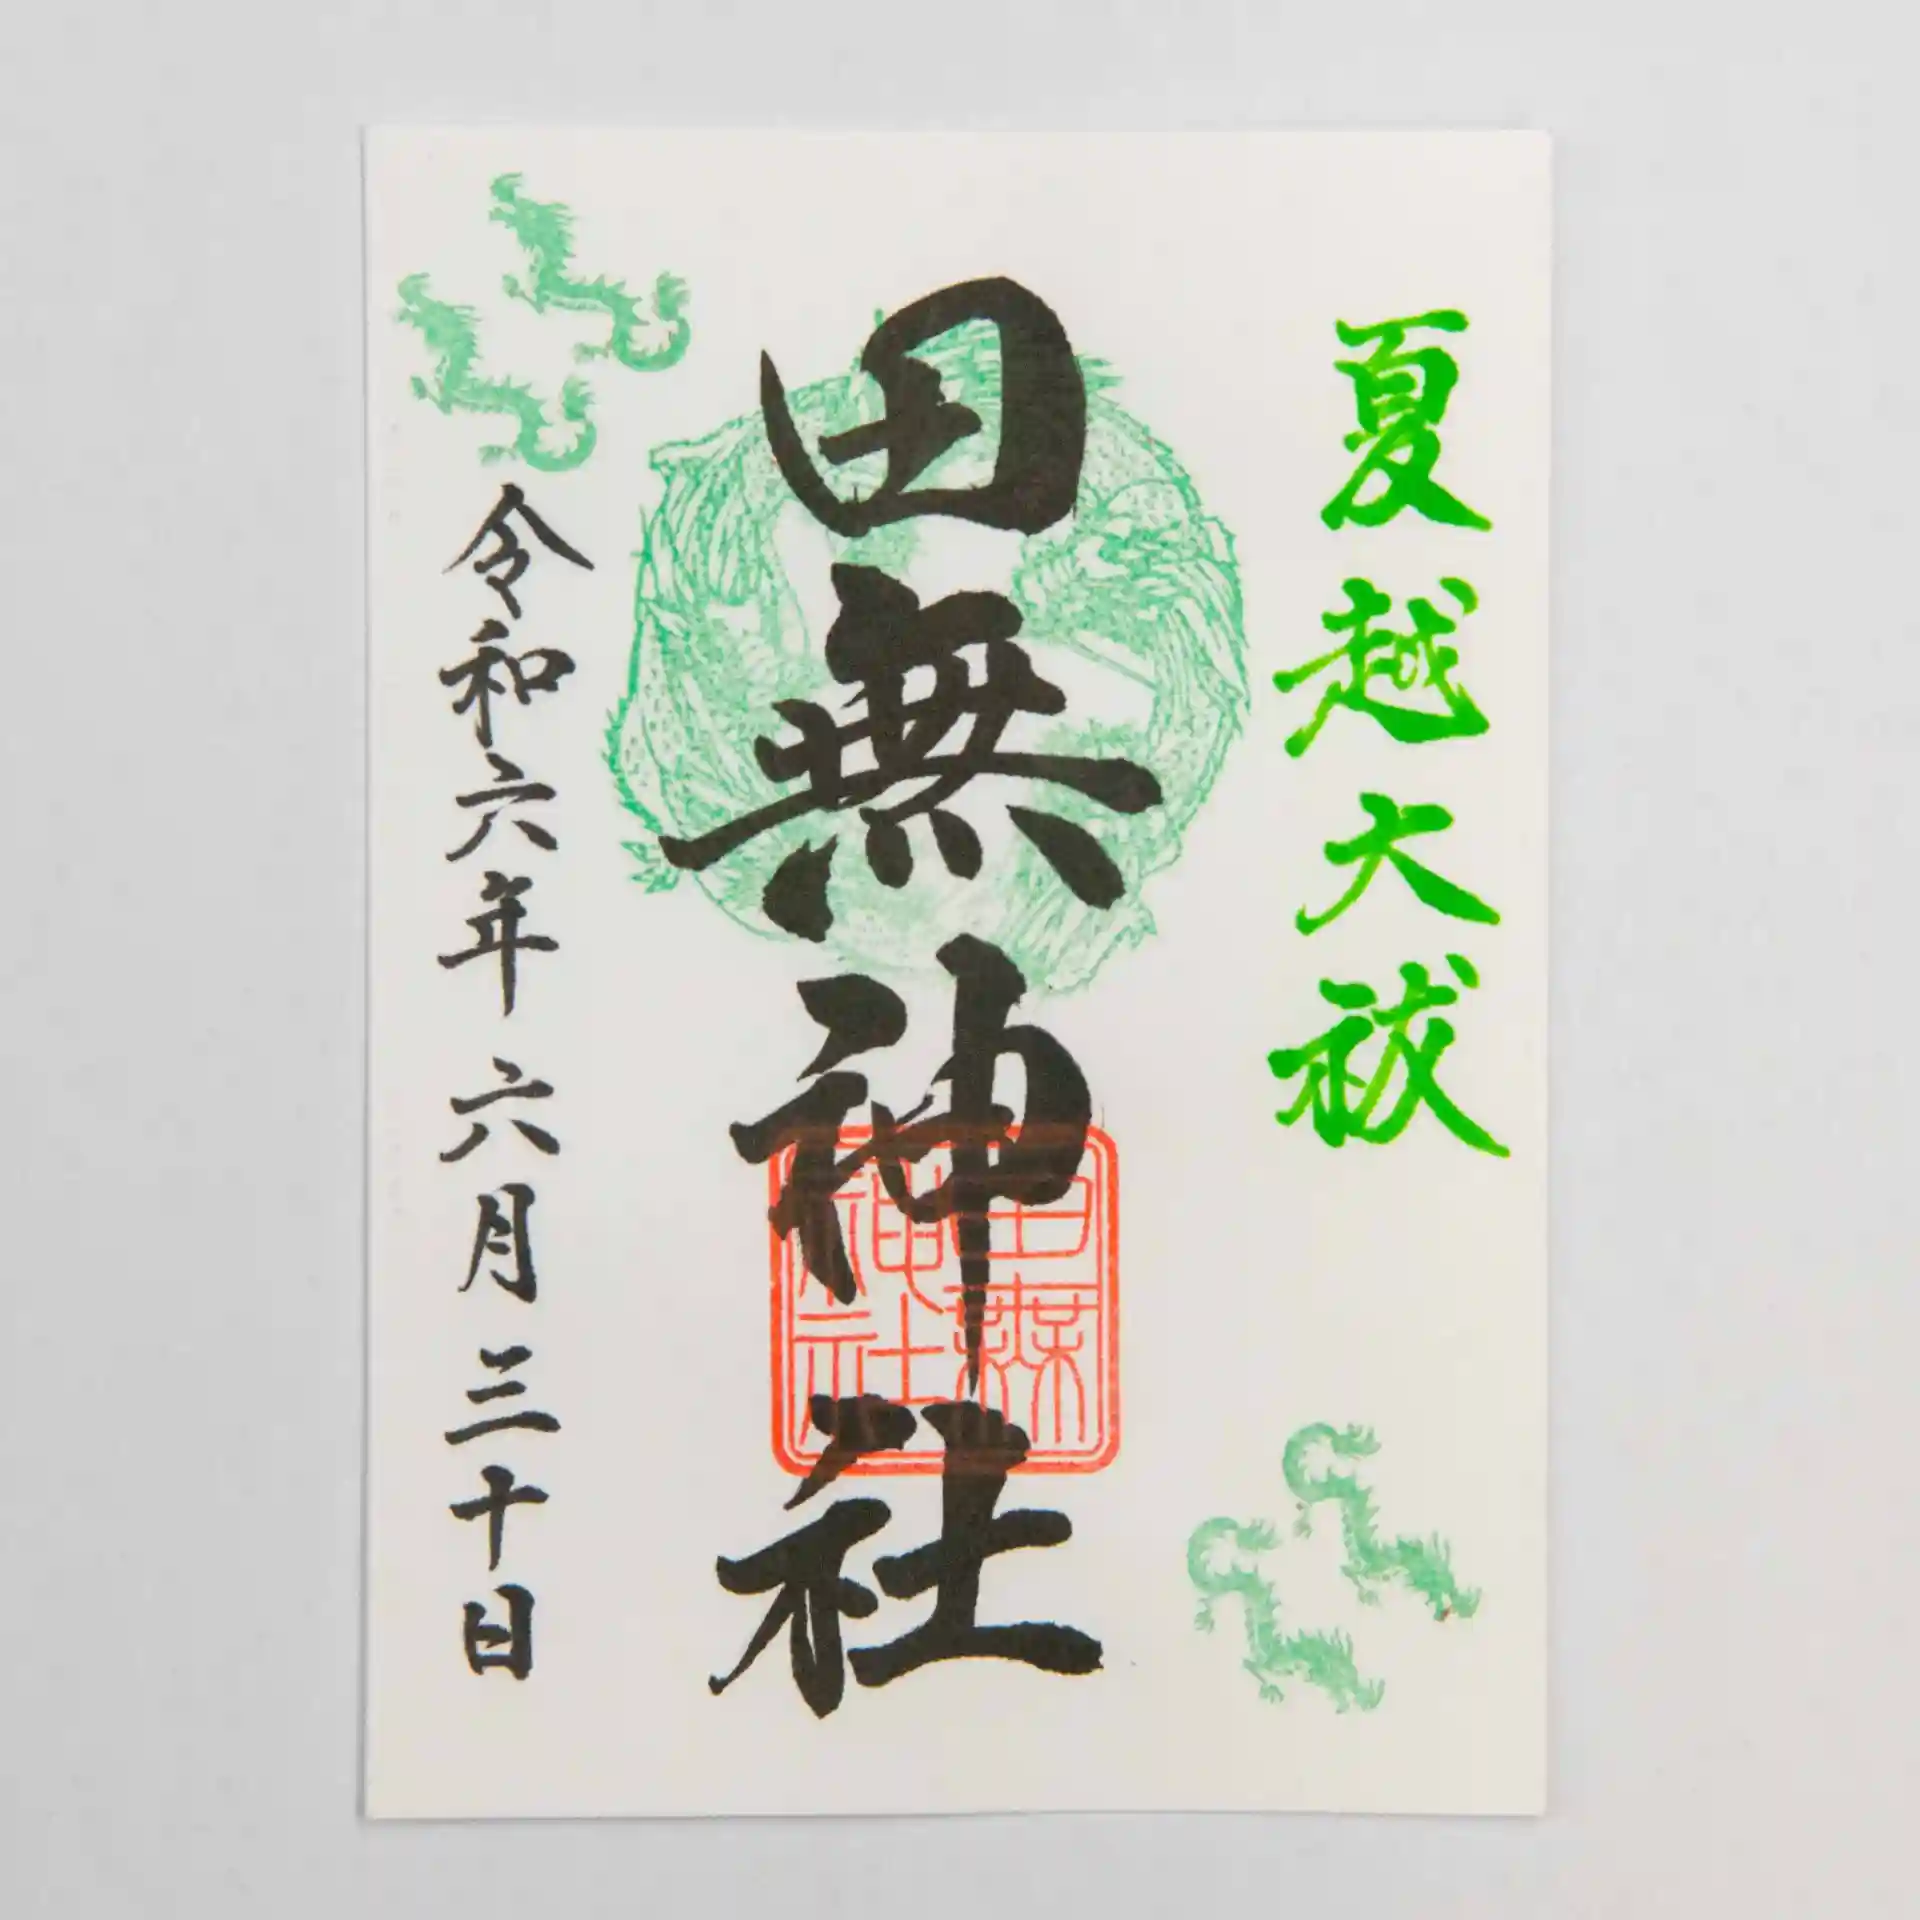 夏越大祓
田無神社
田無
神社
令和六年 六月 三十日